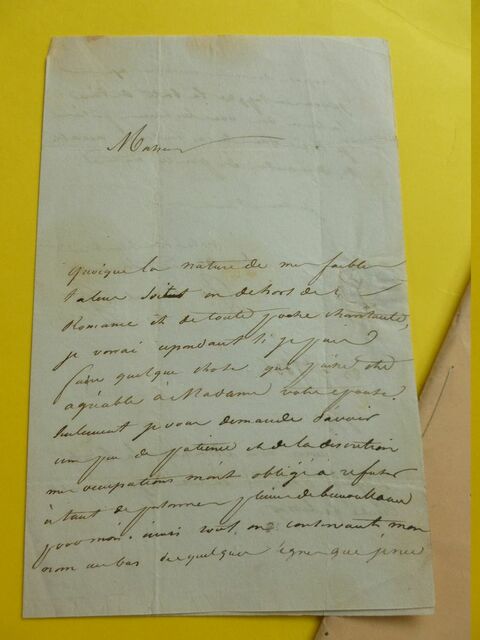 Monsieur
quoique la nature de mon faible
talent soit en dehors de la
Romance et de toute poésie chantante,
je verrai cependant si je puis
faire quelque chose qui puisse être
agréable à Madame votre épouse.
Seulement je vous demande d'avoir
un peu de patience et de la discretion
mes occupations m'ont obligé à refuser
à tant de personnes pleines de bienveillance
pour moi. mais tout en
nom au bas de quelques lignes que je